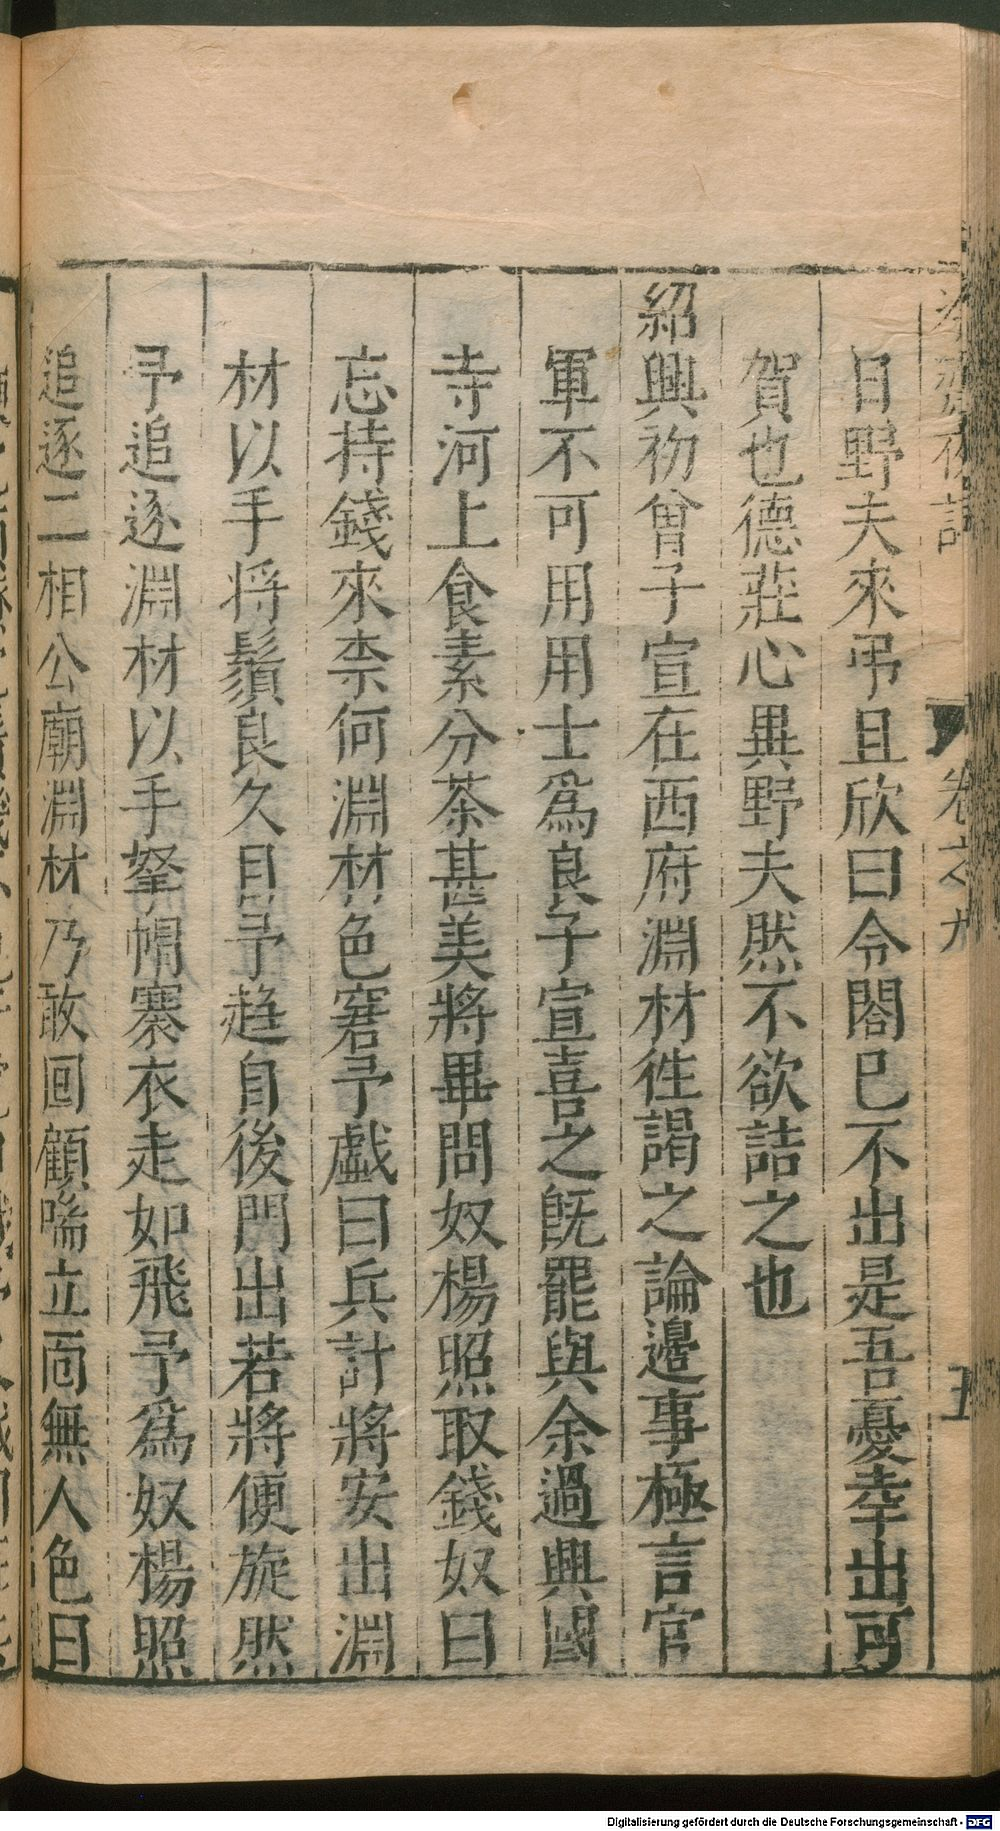 目野夫來弔且欣曰令閤已不出是吾憂幸出可
賀也德莊心異野夫然不欲詰之也
紹興初曾子宣在西府淵材徃謁之論邊事極言官
軍不可用用士爲良子宣喜之旣罷與余過興國
寺河上食素分茶甚美將畢問奴楊照取錢奴曰
忘持錢來柰何淵材色窘予戲曰兵計將安出淵
材以手将鬚良久目予趍自後門出若將便旋然
予追逐淵材以手拏帽褰衣走如飛予爲奴楊照
追逐二相公廟淵材乃敢回顧喘立靣無人色曰
卷之九
Digitalisierung gefördert durch die Deutsche Forschungsgemeinschaft - DFG